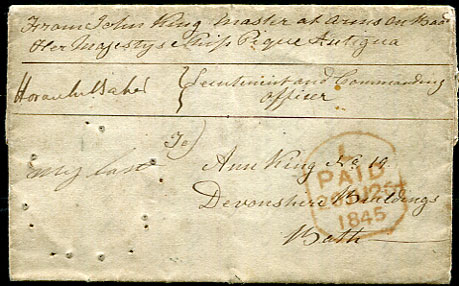 From John King Master at Arms on Boa
Her Majestys Ship Pique Antigua
Lieutenant and Commanding
officer
To
My last
Ann King No 19
Devonshire Buildings
Bath
1
PAID
1845